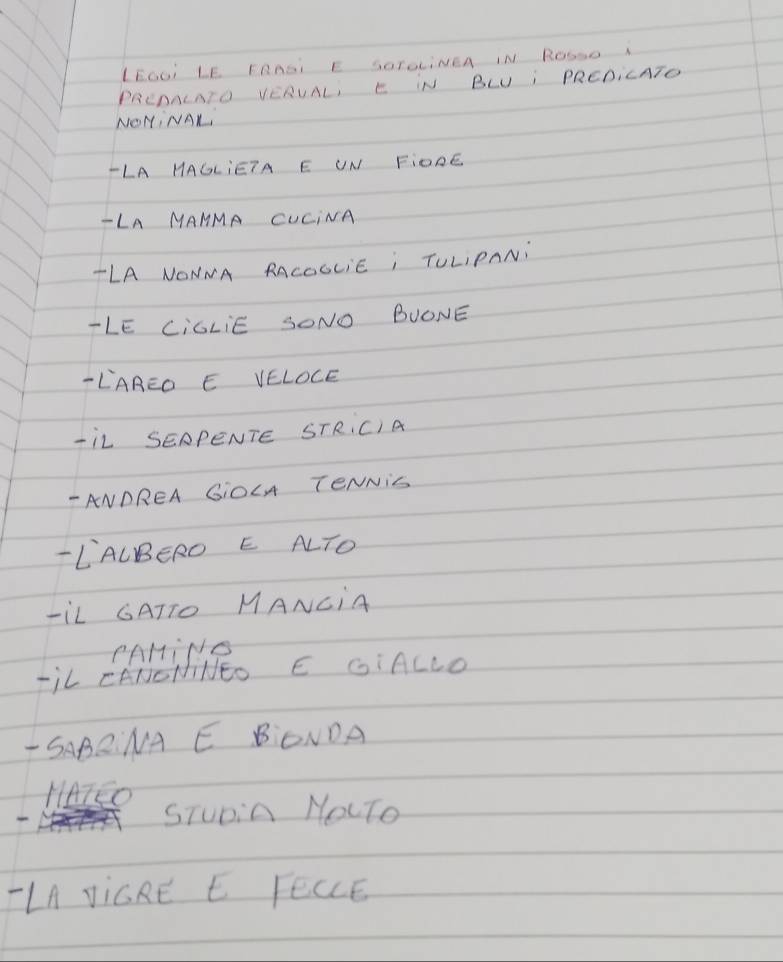 LEGGI LE FRASI E SOTOLINEA IN ROSSO I
PREDACATO VERUALI E IN BLU I PREDICATO
NOMINALI
-LA MAGLIETA E UN FIORE
-LA MAMMA CUCINA
-LA NONNA RACOGLIE I TULIPANI
-LE CIGLIE SONO BUONE
-L'AREO E VELOCE
-IL SERPENTE STRICIA
-ANDREA GIOCA TENNIS
-L'ALBERO E ALTO
-IL GATTO MANGIA
-IL CAMINO E GIALLO
-SABRINA E BIONDA
-MATEO STUDIA MOLTO
-LA TIGRE E